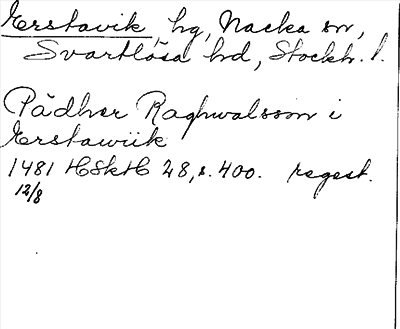 Erstavik, hg, Nacka sn,
Svartlösa hd, Stockh. l.
Pädher Raghwalsson i
Erstawiik
1481 HSkH 28, s. 400. regest.
12/8